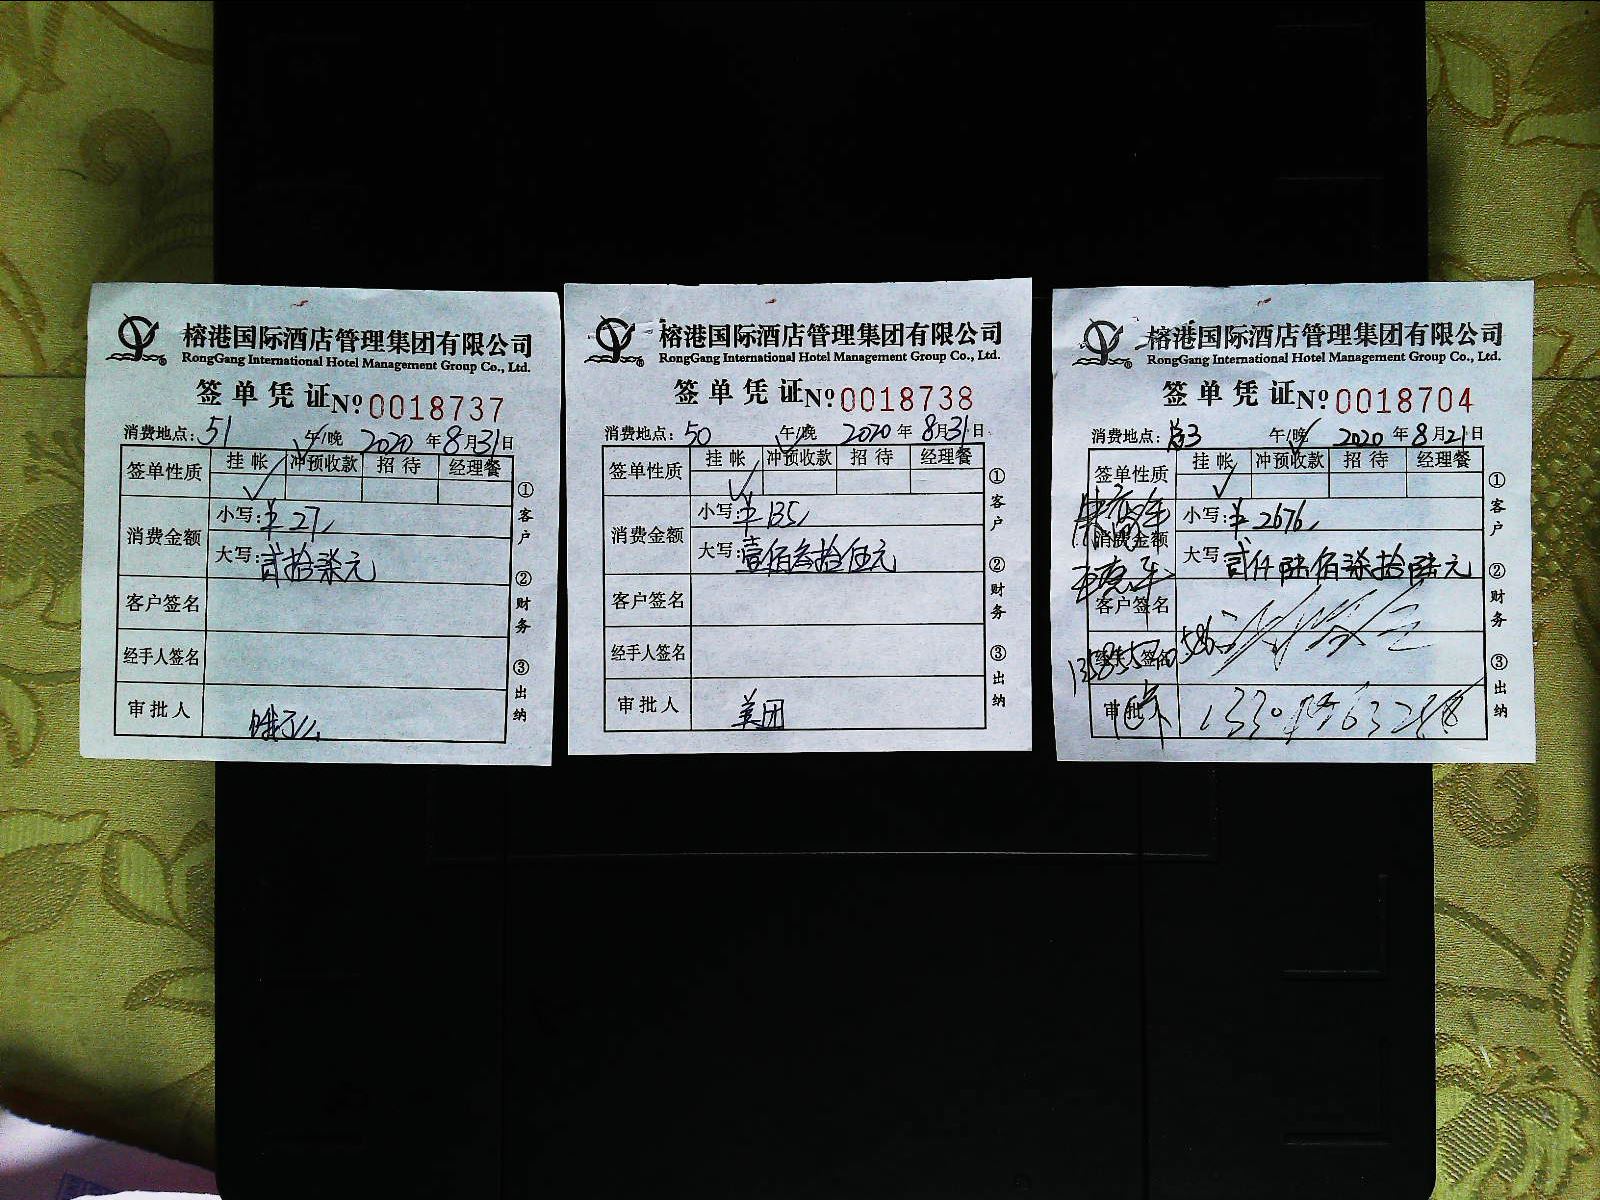 榕港国际酒店管理集团有限公司
RongGang International Hotel Management Group Co., Ltd.
签单凭证 Nº 0018737
消费地点: 51 午/晚 2020 年 8 月 31 日
签单性质 挂帐 冲预收款 招待 经理餐
✓
消费金额
小写: ¥27
大写: 贰拾柒元
客户签名
经手人签名
审批人 饿了么
① 客户 ② 财务 ③ 出纳
榕港国际酒店管理集团有限公司
RongGang International Hotel Management Group Co., Ltd.
签单凭证 Nº 0018738
消费地点: 50 午/晚 2020 年 8 月 31 日
签单性质 挂帐 冲预收款 招待 经理餐
✓
消费金额
小写: ¥135
大写: 壹佰叁拾伍元
客户签名
经手人签名
审批人 美团
① 客户 ② 财务 ③ 出纳
榕港国际酒店管理集团有限公司
RongGang International Hotel Management Group Co., Ltd.
签单凭证 Nº 0018704
消费地点: 午/晚 2020 年 8 月 21 日
签单性质 挂帐 冲预收款 招待 经理餐
✓
消费金额
小写: ¥2676
大写: 贰仟陆佰柒拾陆元
客户签名
经手人签名
审批人
① 客户 ② 财务 ③ 出纳